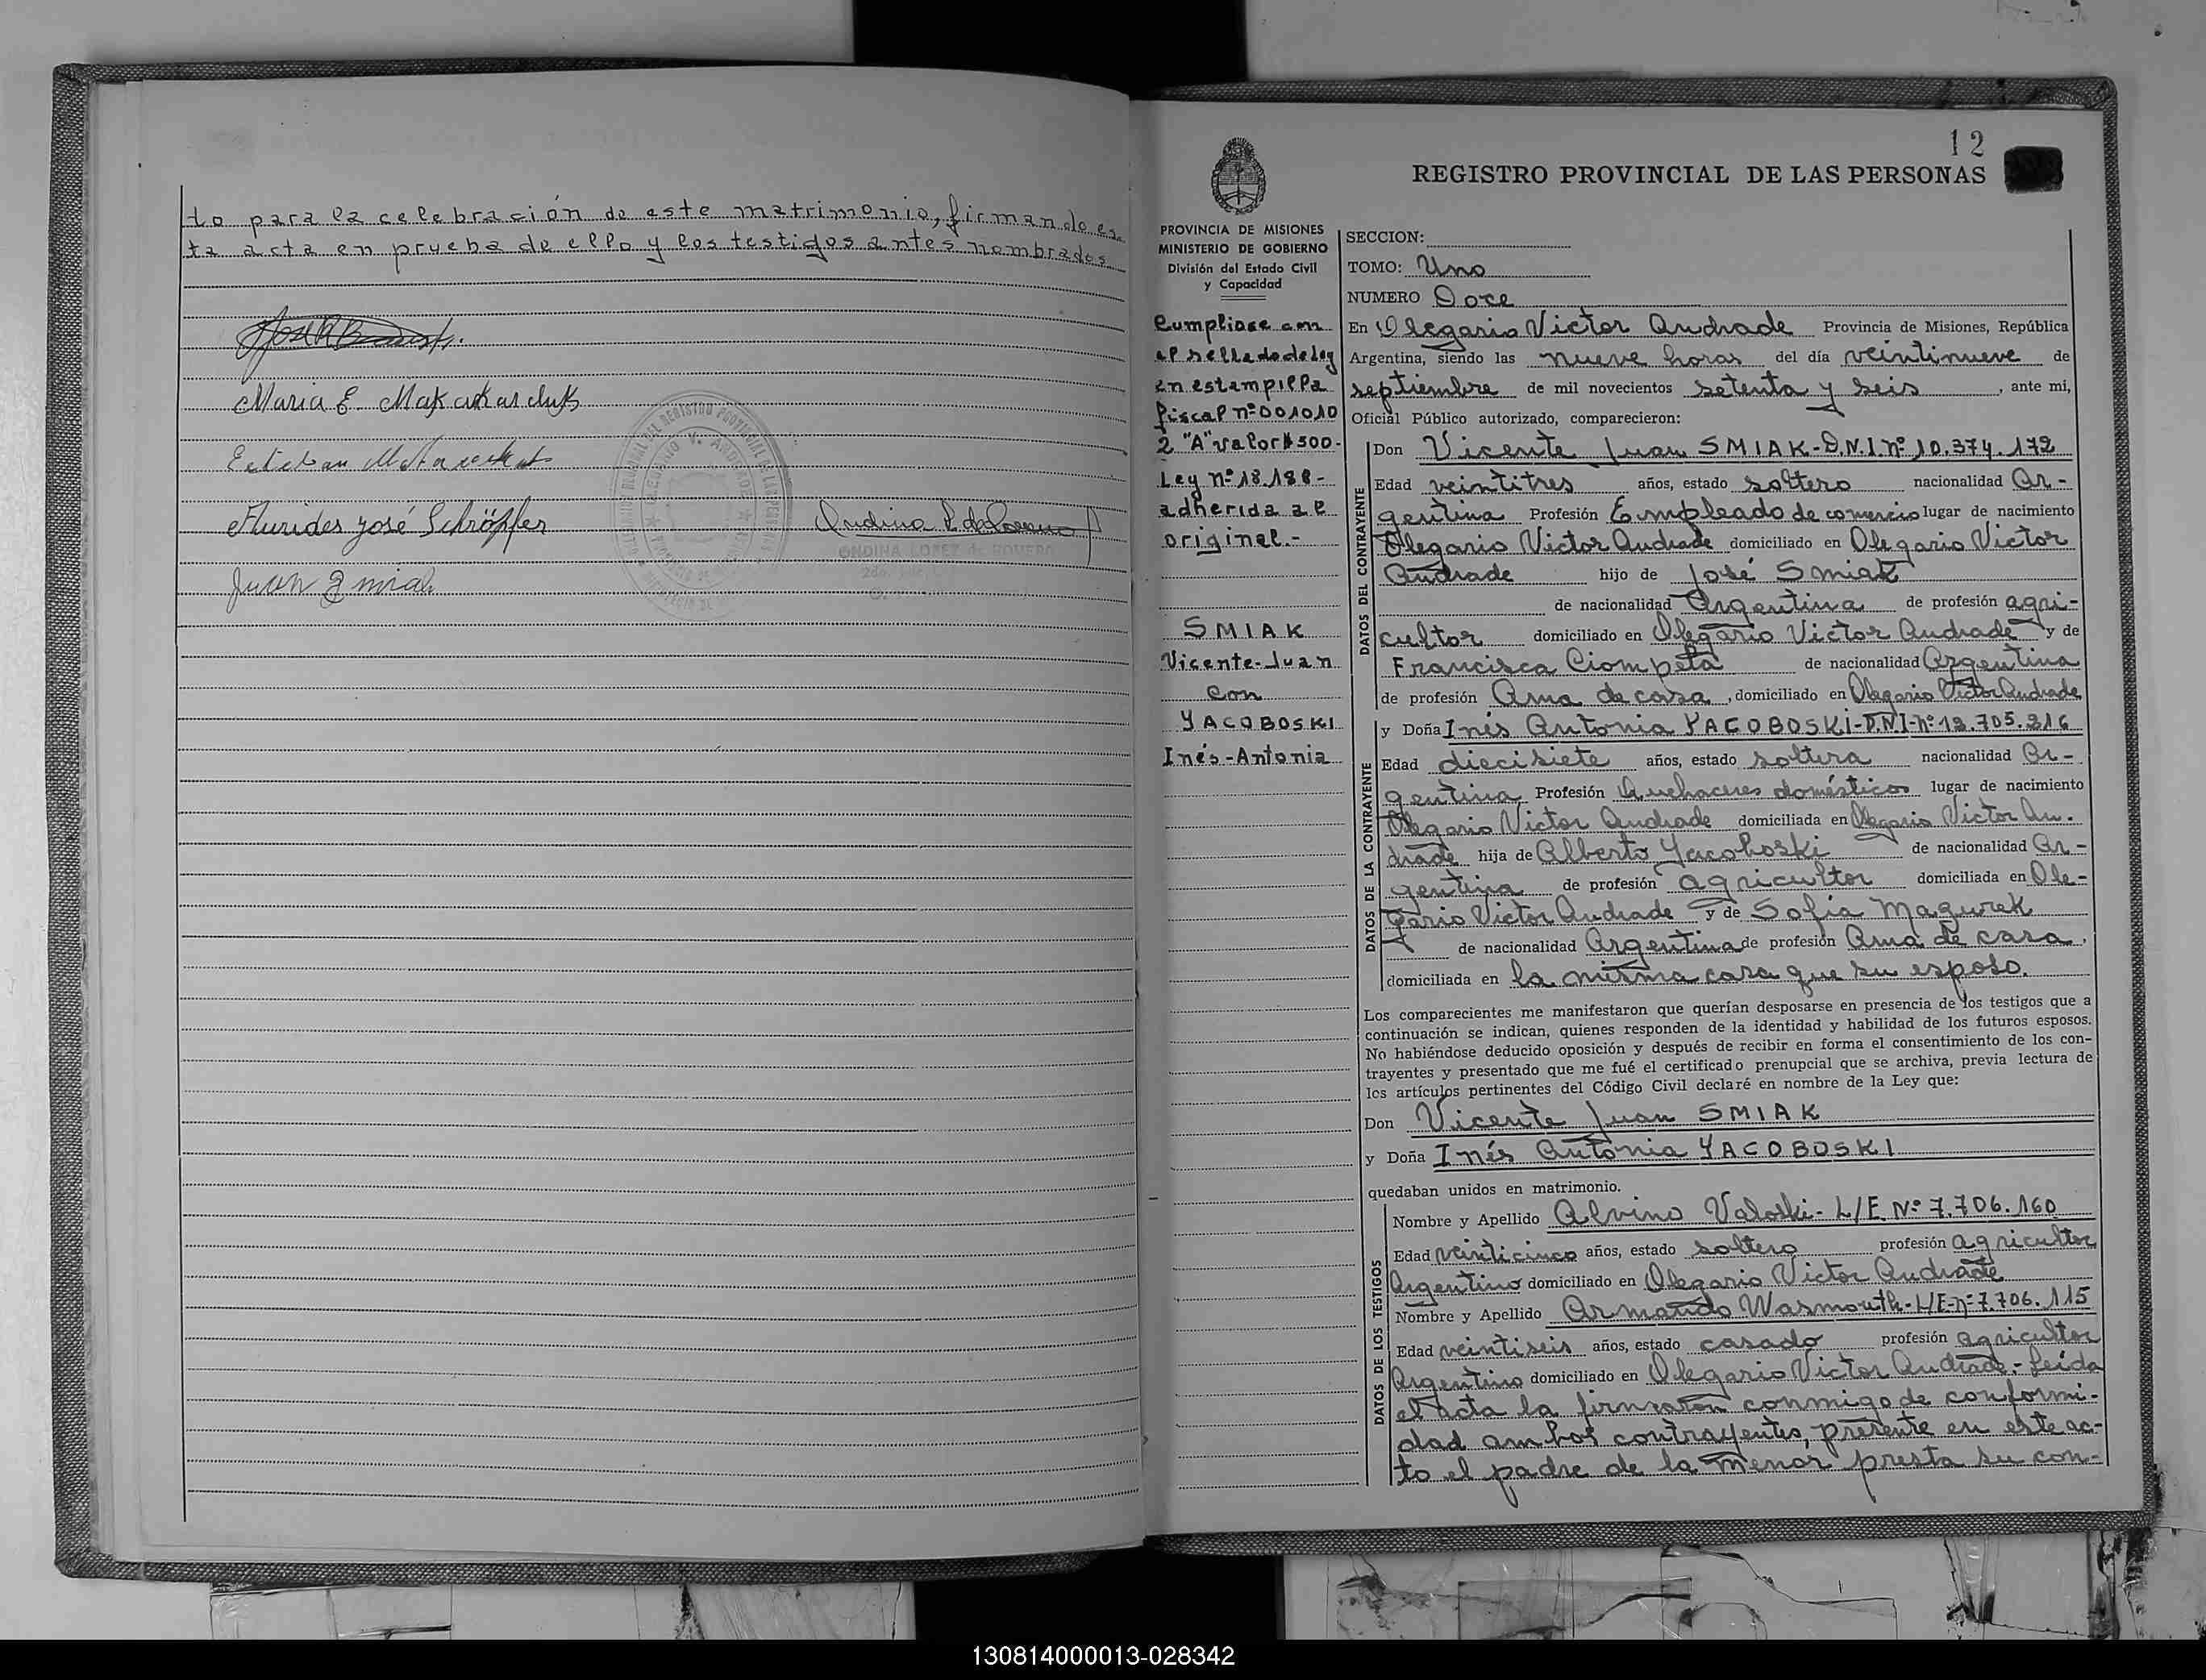 to para la celebración de este matrimonio, firmando es-
ta acta en prueba de ello y los testigos antes nombrados
Maria E. Makarchuk
Esteban
Eurides José Schröpfer
Juan Smiak
ONDINA LOPEZ de ROVERO
12
REGISTRO PROVINCIAL DE LAS PERSONAS
PROVINCIA DE MISIONES
MINISTERIO DE GOBIERNO
División del Estado Civil
y Capacidad
Cumpliose con
el sellado de ley
en estampilla
fiscal nº 001010
2 "A" valor $ 500-
Ley nº 18.188-
adherida al
original.-
SMIAK
Vicente-Juan
con
YACOBOSKI
Inés-Antonia
SECCION:
TOMO: Uno
NUMERO Doce
En Olegario Victor Andrade Provincia de Misiones, República
Argentina, siendo las nueve horas del día veintinueve de
septiembre de mil novecientos setenta y seis, ante mi,
Oficial Público autorizado, comparecieron:
DATOS DEL CONTRAYENTE
Don Vicente Juan SMIAK-D.N.I. nº 10.374.172
Edad veintitres años, estado soltero nacionalidad Ar-
gentina Profesión Empleado de comercio lugar de nacimiento
Olegario Victor Andrade domiciliado en Olegario Victor
Andrade hijo de José Smiak
de nacionalidad Argentina de profesión agri-
cultor domiciliado en Olegario Victor Andrade y de
Francisca Ciompela de nacionalidad Argentina
de profesión Ama de casa, domiciliado en Olegario Victor Andrade
DATOS DE LA CONTRAYENTE
y Doña Inés Antonia YACOBOSKI-D.N.I-nº 12.705.216
Edad diecisiete años, estado soltera nacionalidad Ar-
gentina Profesión Quehaceres domésticos lugar de nacimiento
Olegario Victor Andrade domiciliada en Olegario Victor An-
drade hija de Alberto Yacoboski de nacionalidad Ar-
gentina de profesión agricultor domiciliada en Ole-
gario Victor Andrade y de Sofía Magurek
de nacionalidad Argentina de profesión Ama de casa,
domiciliada en la misma casa que su esposo.
Los comparecientes me manifestaron que querían desposarse en presencia de los testigos que a
continuación se indican, quienes responden de la identidad y habilidad de los futuros esposos.
No habiéndose deducido oposición y después de recibir en forma el consentimiento de los con-
trayentes y presentado que me fué el certificado prenupcial que se archiva, previa lectura de
los artículos pertinentes del Código Civil declaré en nombre de la Ley que:
Don Vicente Juan SMIAK
y Doña Inés Antonia YACOBOSKI
quedaban unidos en matrimonio.
DATOS DE LOS TESTIGOS
Nombre y Apellido Alvino Valoski- L/E Nº 7.706.160
Edad veinticinco años, estado soltero profesión agricultor
Argentino domiciliado en Olegario Victor Andrade
Nombre y Apellido Armando Wasmouth-L/E-nº 7.706.115
Edad veintiseis años, estado casado profesión agricultor
Argentino domiciliado en Olegario Victor Andrade.- Leída
el acta la firmaron conmigo de conformi-
dad ambos contrayentes, presente en este ac-
to el padre de la menor presta su con-
130814000013-028342